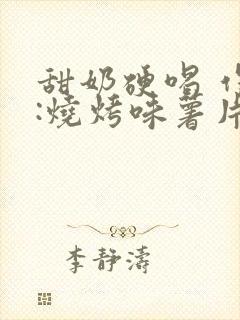 甜奶硬唱
:燒烤味薯片
李靜濤